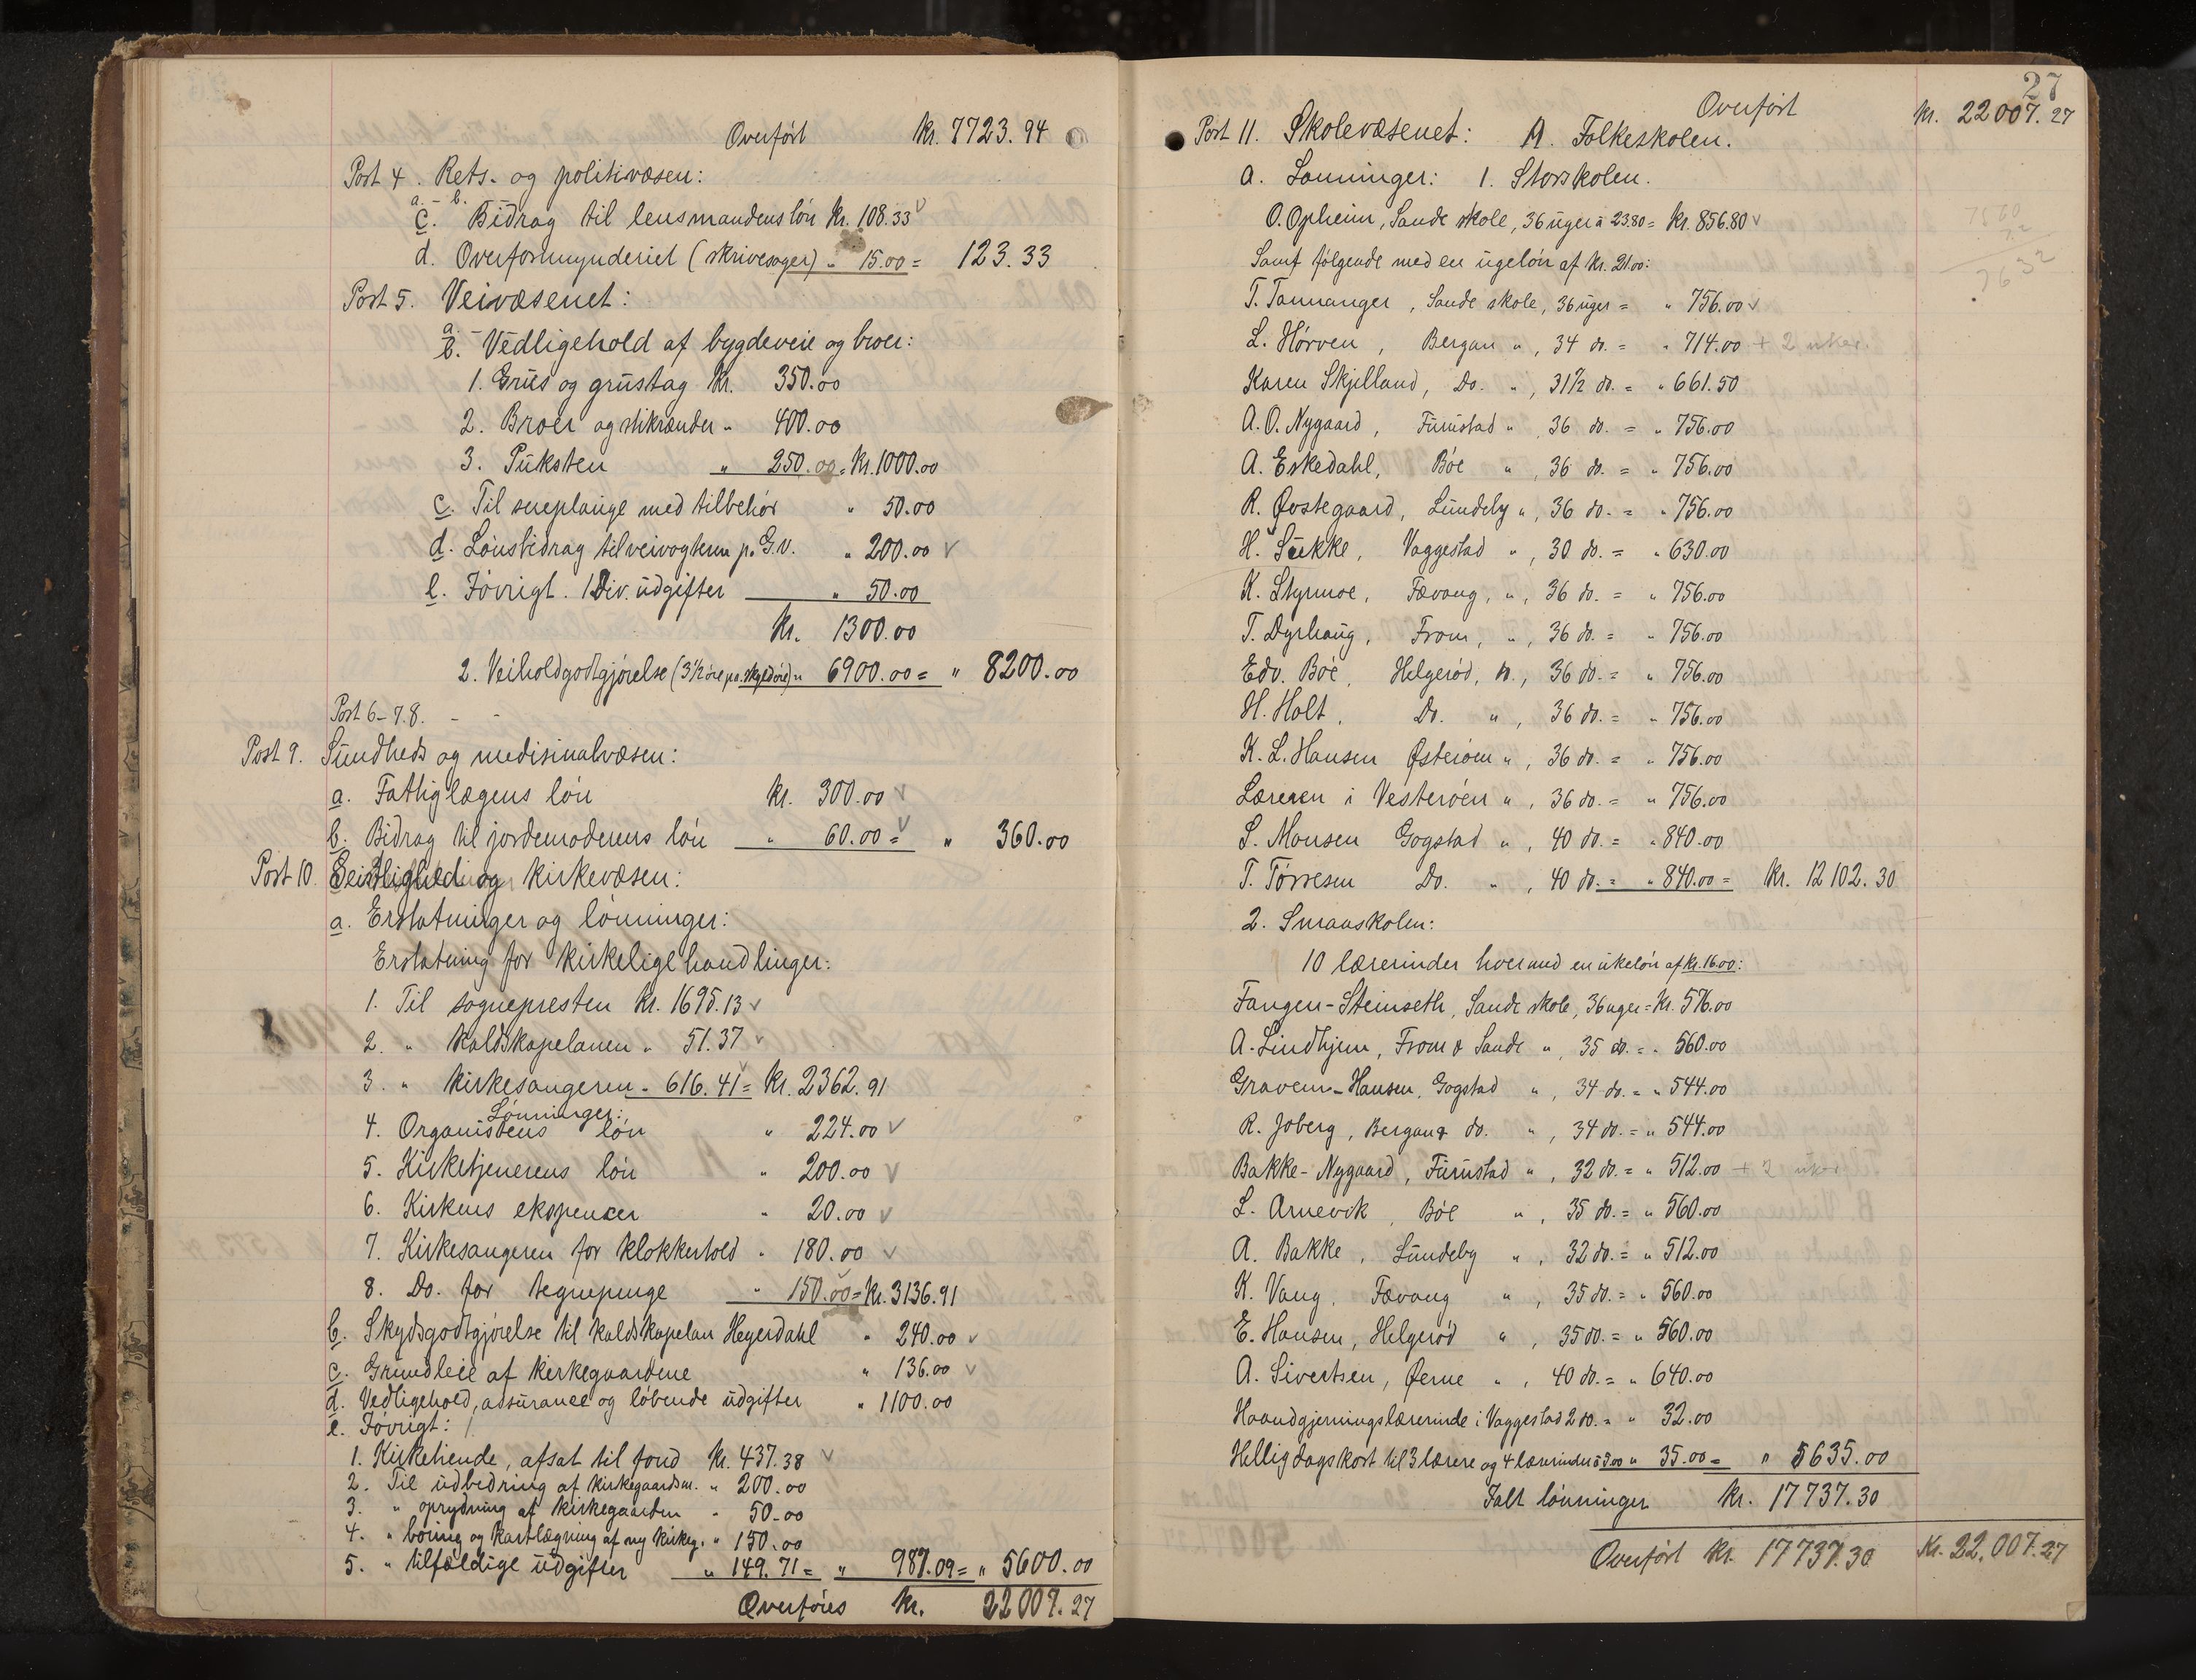 Overført Kr. 7723.94
Post 4. Rets- og politivæsen:
a. - b.
c. Bidrag til lensmandens løn Kr. 108.33 v
d. Overformynderiet (skrivesager) " 15.00 = 123.33
Post 5. Veivæsenet:
a. -
b. Vedligehold af bygdeveie og broer:
1. Grus og grustag Kr. 350.00
2. Broer og stikrender " 400.00
3. Puksten " 250.00 = Kr. 1000.00
c. Til sneplouge med tilbehør " 50.00
d. Lønsbidrag til veivogteren p. G.v. " 200.00 v
e. Iøvrigt. 1 Div. udgifter " 50.00
Kr. 1300.00
2. Veiholdgodtgjørelse (3½ øre pr. skyldøre) " 6900.00 = " 8200.00
Post 6-7.8. - -
Post 9. Sundheds og medisinalvæsen:
a. Fattiglægens løn Kr. 300.00 v
b. Bidrag til jordemoderens løn " 60.00 = v " 360.00
Post 10. Geistlighed og kirkevæsen:
a. Erstatninger og lønninger:
Erstatning for kirkelige handlinger:
1. Til sognepresten Kr. 1695.13 v
2. " kaldskapelanen " 51.37 v
3. " kirkesangeren " 616.41 = Kr. 2362.91
Lønninger:
4. Organistens løn " 224.00 v
5. Kirketjenerens løn " 200.00 v
6. Kirkens ekspenser " 20.00 v
7. Kirkesangeren for klokkerhold " 180.00 v
8. Do. for tegnepenge " 150.00 = Kr. 3136.91
b. Skydsgodtgjørelse til kaldskapelan Heyerdahl " 240.00 v
c. Grundleie af kirkegaardene " 136.00 v
d. Vedligehold, assurance og løbende udgifter " 1100.00
e. Iøvrigt:
1. Kirketiende, afsat til fond Kr. 437.38 v
2. Til udbedring af kirkegaardsm. " 200.00
3. " oprydning af kirkegaarden " 50.00
4. " boring og kartlægning af ny kirkeg. " 150.00
5. " tilfældige udgifter " 149.71 = " 987.09 = " 5600.00
Overføres Kr. 22007.27
27
Overført Kr. 22007.27
Post 11. Skolevæsenet: A. Folkeskolen.
a. Lønninger: 1. Storskolen.
O. Opheim, Sande skole, 36 uger à 23.80 = Kr. 856.80 v
Samt følgende med en ugeløn af Kr. 21.00:
T. Tananger, Sande skole, 36 uger = " 756.00 v
L. Hørven, Bergan ", 34 do. = " 714.00 + 2 uker.
Karen Skjelland, Do. ", 31½ do. = " 661.50
A. O. Nygaard, Furustad ", 36 do. = " 756.00
A. Eskedahl, Bøe ", 36 do. = " 756.00
R. Qvstegaard, Lundeby ", 36 do. = " 756.00
H. Sukke, Vaggestad ", 30 do. = " 630.00
K. Styrmoe, Fævang, ", 36 do. = " 756.00
T. Dyrhaug, From, ", 36 do. = " 756.00
Edv. Bøe, Helgerød, ", 36 do. = " 756.00
H. Holt, Do. ", 36 do. = " 756.00
K. L. Hansen Østerøen ", 36 do. = " 756.00
Læreren i Vesterøen ", 36 do. = " 756.00
S. Monsen Gogstad ", 40 do. = " 840.00
T. Tørresen Do. ", 40 do. = " 840.00 = Kr. 12102.30
2. Smaaskolen:
10 lærerinder hver med en ukeløn af Kr. 16.00:
Fangen-Steinseth, Sande skole, 36 uger = Kr. 576.00
A. Lindhjem, From & Sande ", 35 do. = " 560.00
Gravem-Hansen, Gogstad ", 34 do. = " 544.00
R. Joberg, Bergan & do. ", 34 do. = " 544.00
Bakke-Nygaard, Furustad ", 32 do. = " 512.00 + 2 uker
L. Arnevik, Bøe ", 35 do. = " 560.00
A. Bakke, Lundeby ", 32 do. = " 512.00
K. Vang, Fævang ", 35 do. = " 560.00
E. Hansen, Helgerød ", 35 do. = " 560.00
A. Sivertsen, Øerne ", 40 do. = " 640.00
Haandgjerningslærerinde i Vaggestad 2 do. = " 32.00
Helligdagskort til 3 lærere og 4 lærerinder à 5.00 " 35.00 = " 5635.00
Ialt lønninger Kr. 17737.30
Overført Kr. 17737.30 Kr. 22.007.27